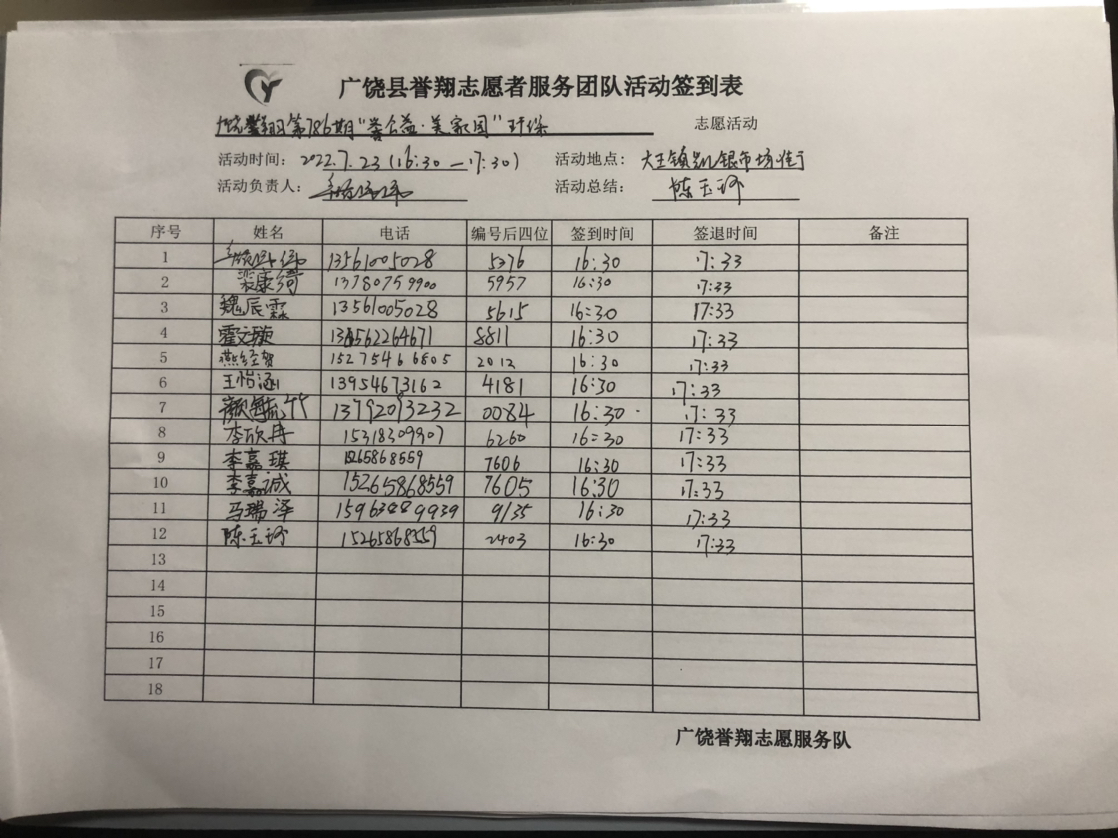 广饶县誉翔志愿者服务团队活动签到表
广饶誉翔第786期“誉公益·美家园”环保 志愿活动
活动时间：2022.7.23（16:30—17:30） 活动地点：大王镇凯银市场街
活动负责人： 活动总结：陈玉珍
序号 姓名 电话 编号后四位 签到时间 签退时间 备注
1 13561005028 5376 16:30 17:33
2 裴康绮 13780759900 5957 16:30 17:33
3 魏辰霖 13561005028 5615 16:30 17:33
4 霍文璇 13562264671 8811 16:30 17:33
5 燕经贺 15275466805 2012 16:30 17:33
6 王怡涵 13954673162 4181 16:30 17:33
7 13792093232 0084 16:30 17:33
8 李欣冉 15318309907 6260 16:30 17:33
9 李嘉琪 15265868559 7606 16:30 17:33
10 李嘉诚 15265868559 7605 16:30 17:33
11 马瑞泽 9135 16:30 17:33
12 陈玉珍 15265868559 2403 16:30 17:33
13
14
15
16
17
18
广饶誉翔志愿服务队